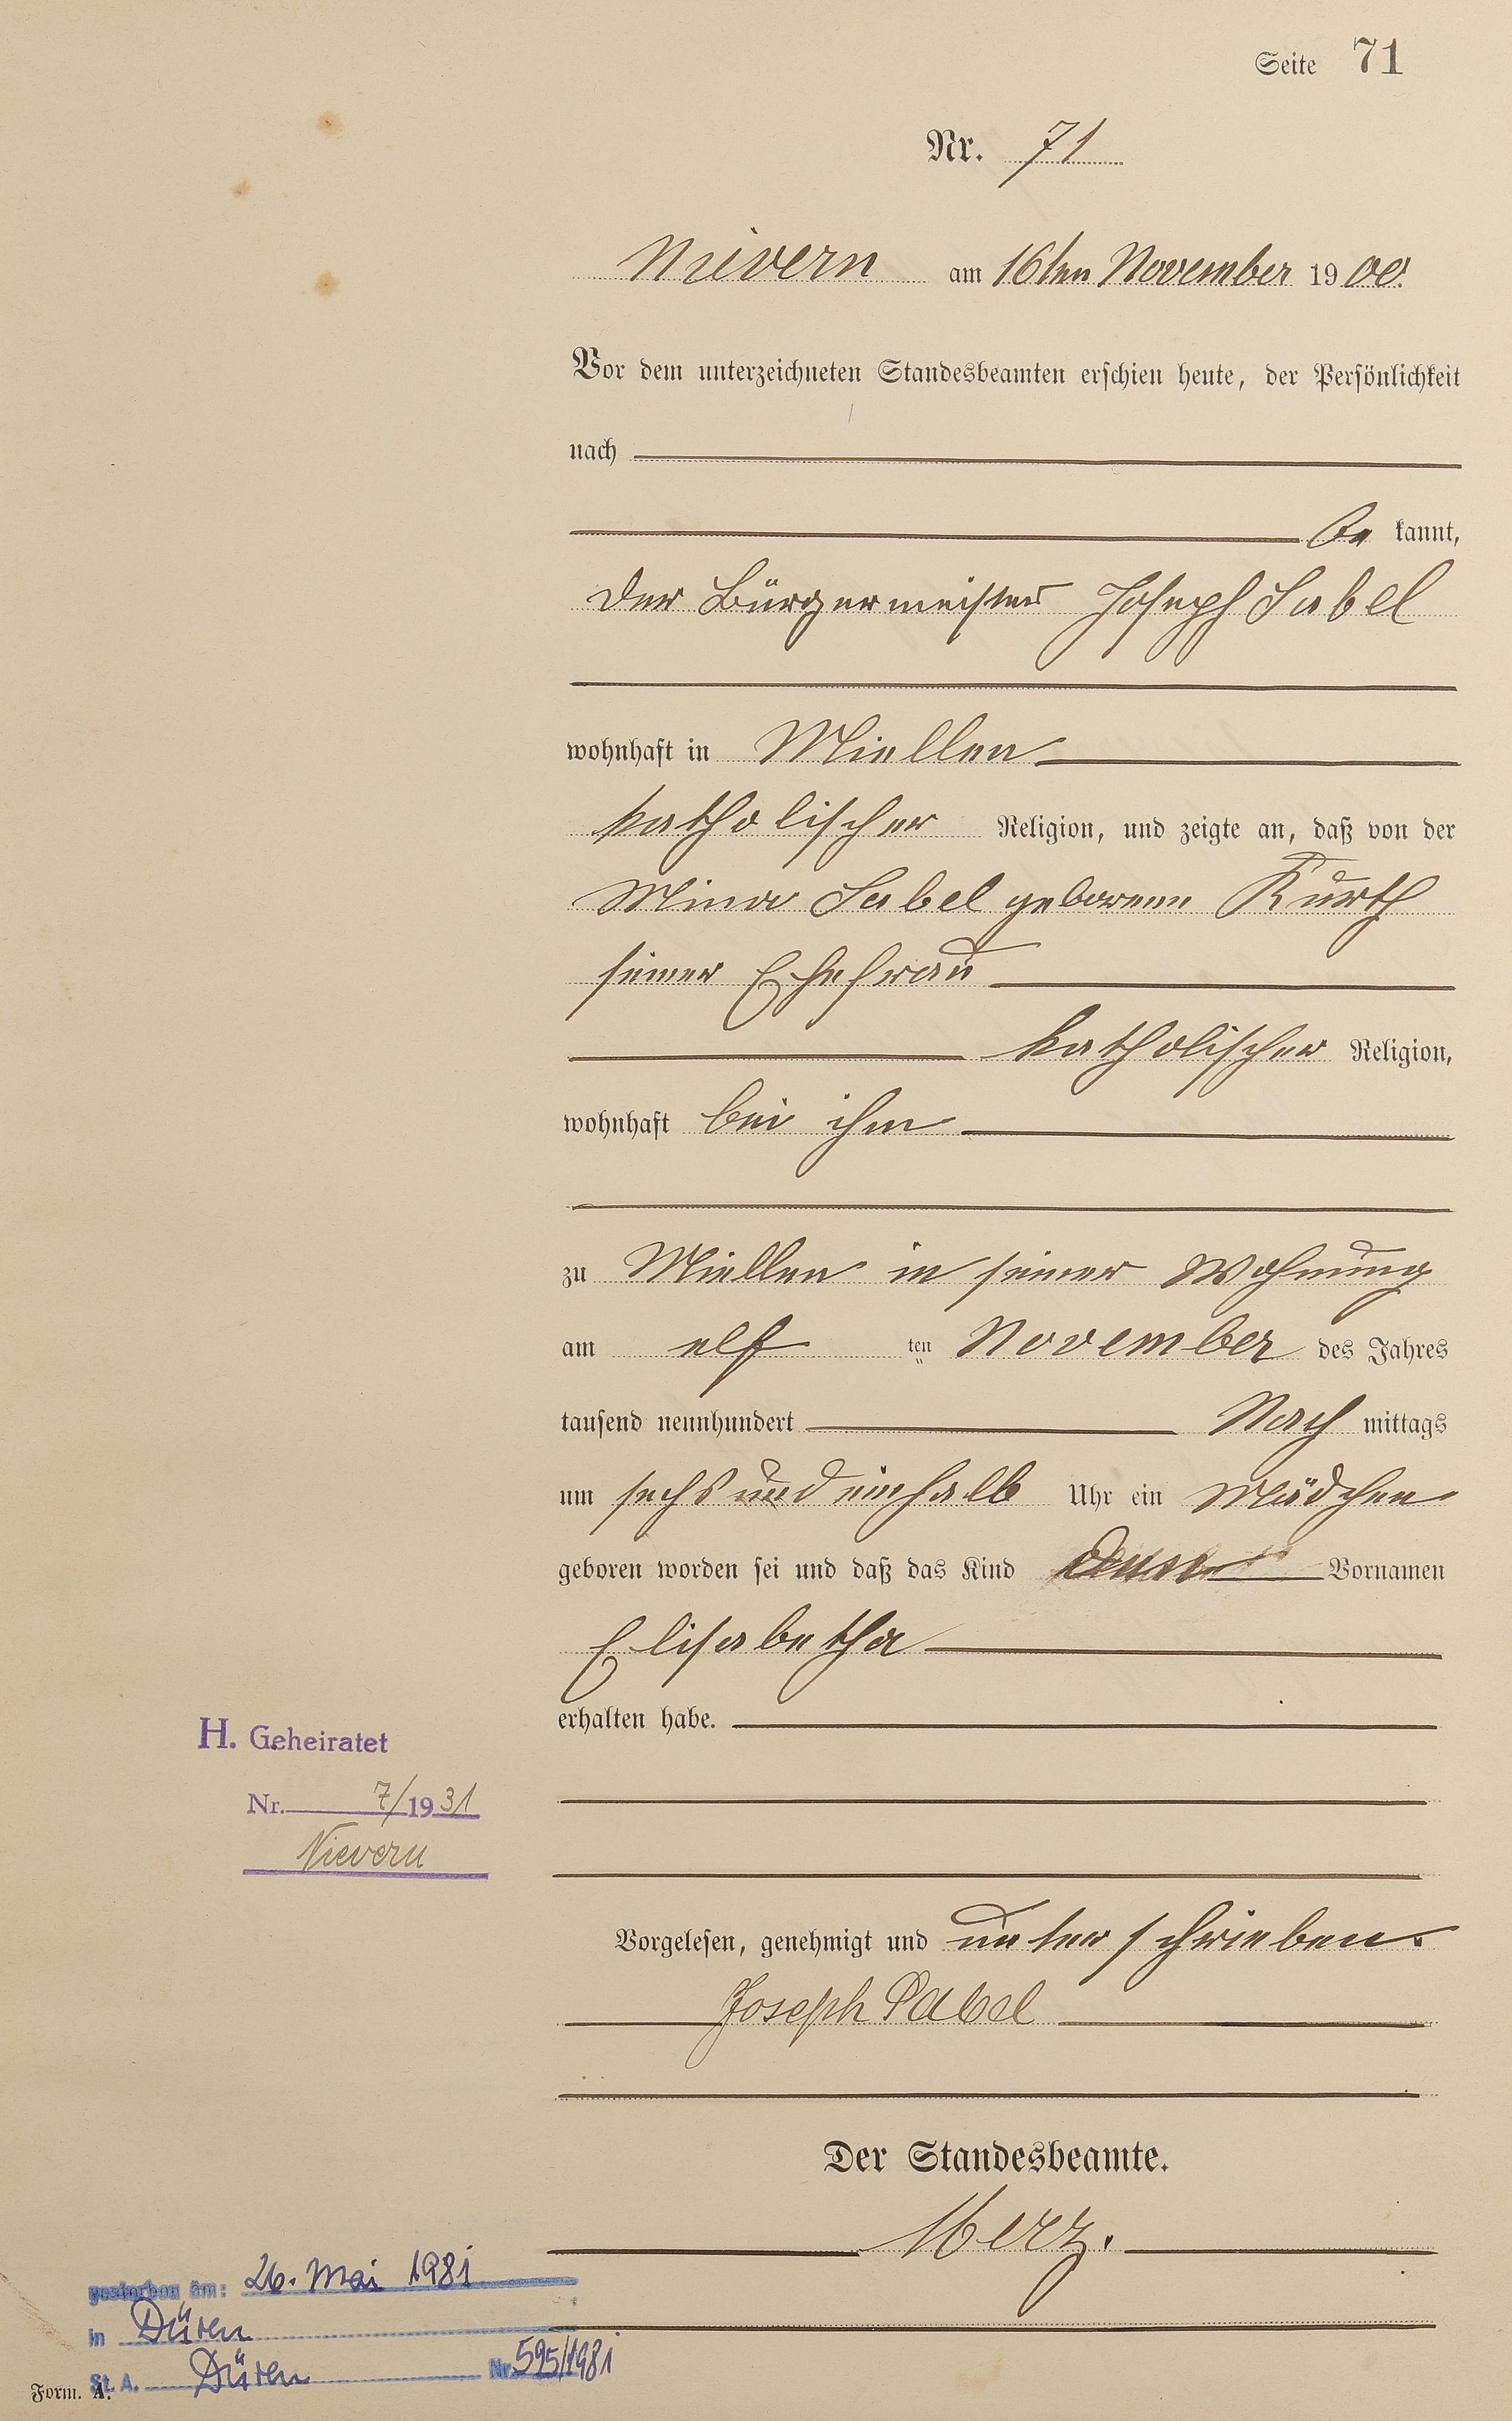 Seite 71
Nr. 71
Nievern am 16ten November 1900.
Vor dem unterzeichneten Standesbeamten erschien heute, der Persönlichkeit
nach
be kannt,
der Bürgermeister Joseph Sabel
wohnhaft in Miellen
katholischer Religion, und zeigte an, daß von der
Mina Sabel geborene Kurth
seiner Ehefrau
katholischer Religion,
wohnhaft bei ihm
zu Miellen in seiner Wohnung
am elf ten November des Jahres
tausend neunhundert Nach mittags
um sechs und einhalb Uhr ein Mädchen
geboren worden sei und daß das Kind Vornamen
Elisabetha
erhalten habe.
H. Geheiratet
Nr. 7/1931
Nievern
Vorgelesen, genehmigt und unterschrieben.
Joseph Sabel
Der Standesbeamte.
Merz.
gestorben am: 26. Mai 1981
in Düren
St. A. Düren Nr. 595/1981
Form. A.